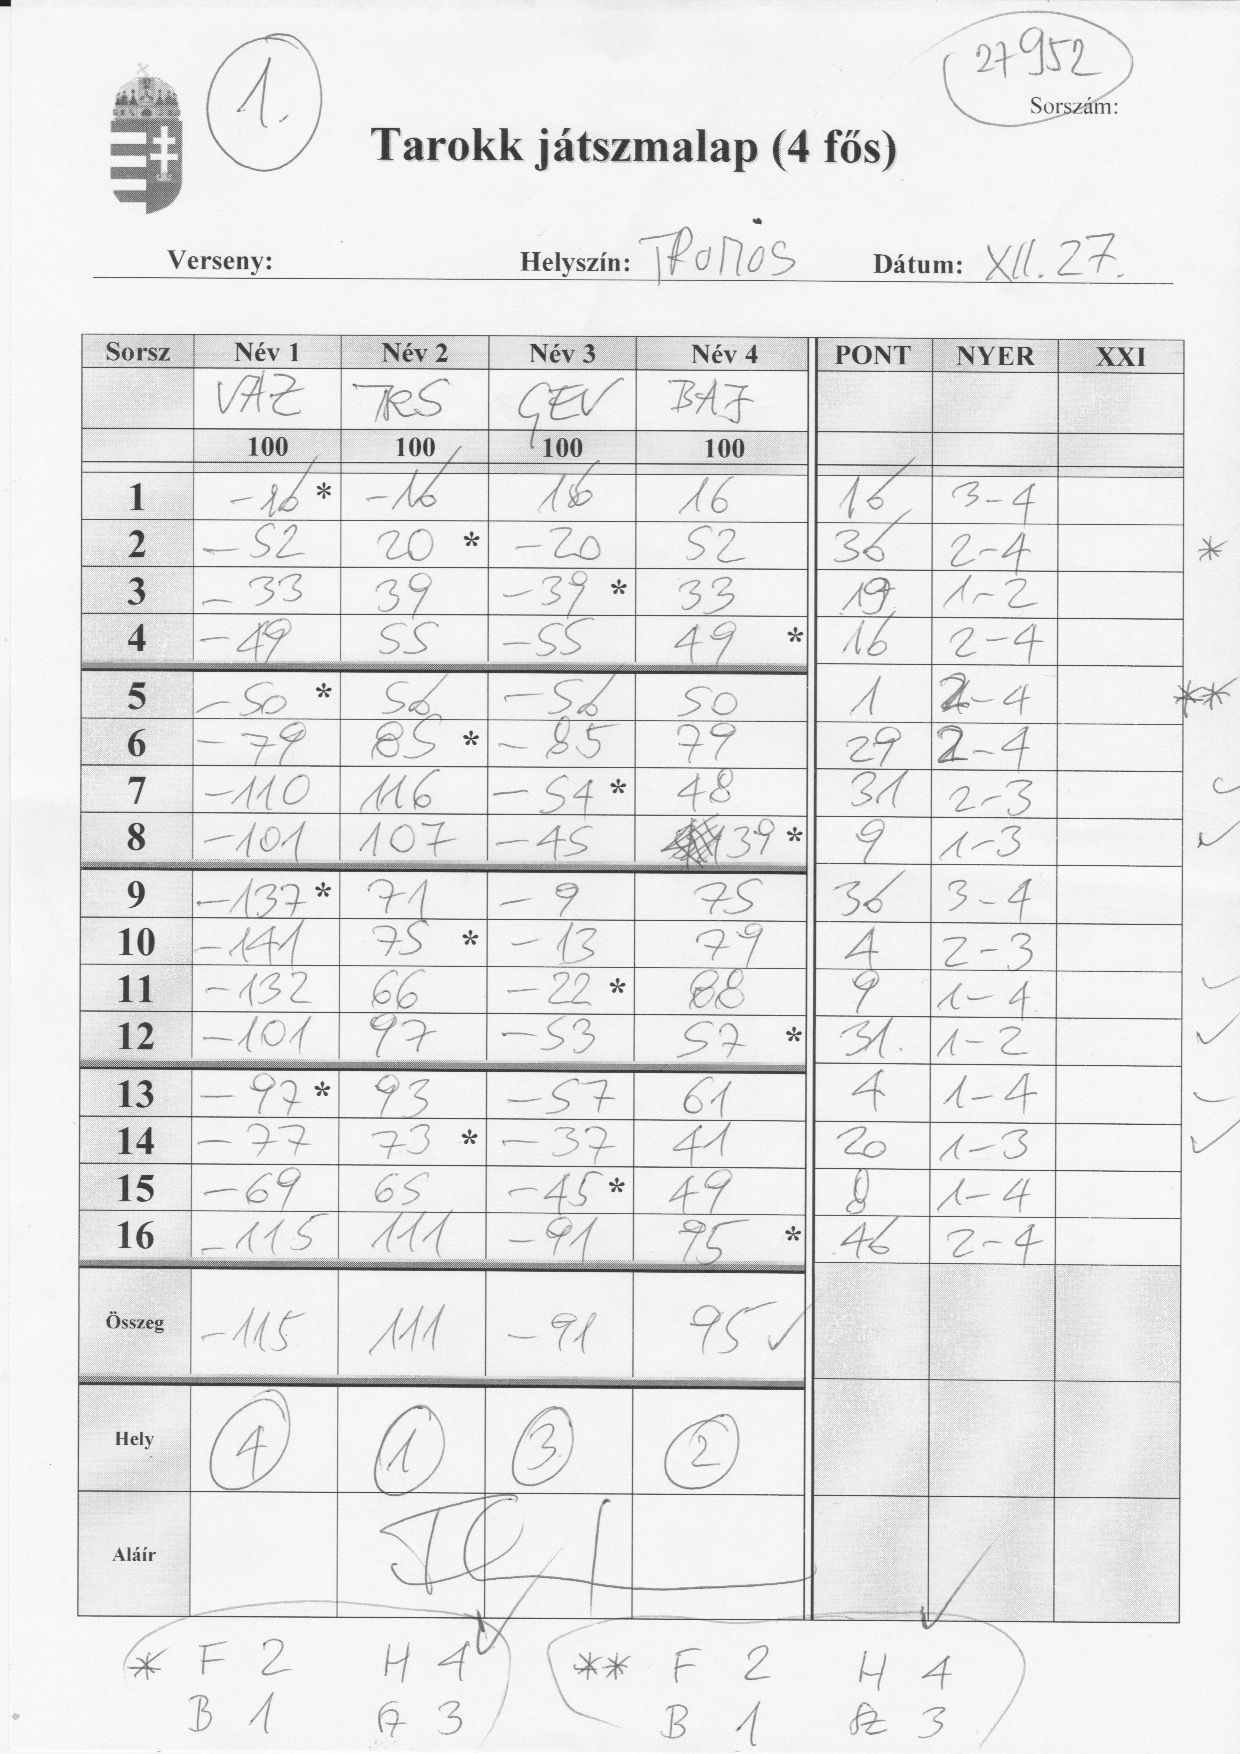 1.
27952
Sorszám:
Tarokk játszmalap (4 fős)
Verseny: Helyszín: TROMOS Dátum: XII. 27.
Sorsz Név 1 Név 2 Név 3 Név 4 PONT NYER XXI
VAZ TRS GEV BAJ
100 100 100 100
1 -16 * -16 16 16 16 3-4
2 -52 20 * -20 52 36 2-4 *
3 -33 39 -39 * 33 19 1-2
4 -49 55 -55 49 * 16 2-4
5 -50 * 56 -56 50 1 2-4 **
6 -79 85 * -85 79 29 2-4
7 -110 116 -54 * 48 31 2-3
8 -101 107 -45 39 * 9 1-3 ✓
9 -137 * 71 -9 75 36 3-4
10 -141 75 * -13 79 4 2-3
11 -132 66 -22 * 88 9 1-4
12 -101 97 -53 57 * 31. 1-2 ✓
13 -97 * 93 -57 61 4 1-4
14 -77 73 * -37 41 20 1-3 ✓
15 -69 65 -45 * 49 8 1-4
16 -115 111 -91 95 * 46 2-4
Összeg -115 111 -91 95 ✓
Hely 4 1 3 2
Aláír
* F 2 H 4 ✓ ** F 2 H 4 ✓
B 1 SZ 3 B 1 SZ 3